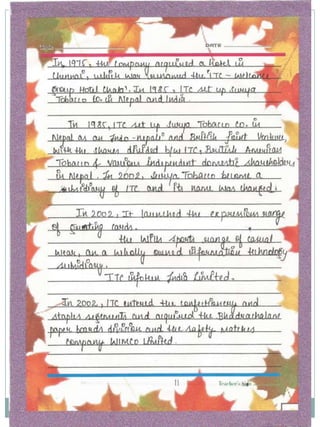 DATE
In 1975, the Company acquired a hotel in
Chennai, which was renamed the 'ITC - welcome
Group Hotel Chola'. In 1985, ITC set up Surya
Tobacco Co. in Nepal and India.
In 1985, ITC set up Surya Tobacco Co. in
Nepal as an Indo-nepali and British joint Venture,
with the shares divided b/w ITC, British American
Tobacco & various independent domestic shareholders
in Nepal. In 2002, Surya Tobacco became a
subsidiary of ITC and its name was changed
In 2002, It launched the expression range
of Greeting cards.
the Wills sports range of casual
wear, an a wholly owned information technology
subsidiary.
ITC infotech India Limited.
In 2002, ITC entered the confectionery and
staples segments and acquired the Bhadrachalam
paper boards division and the safety matches
company WIMCO limited.
11
Teacher's Sign